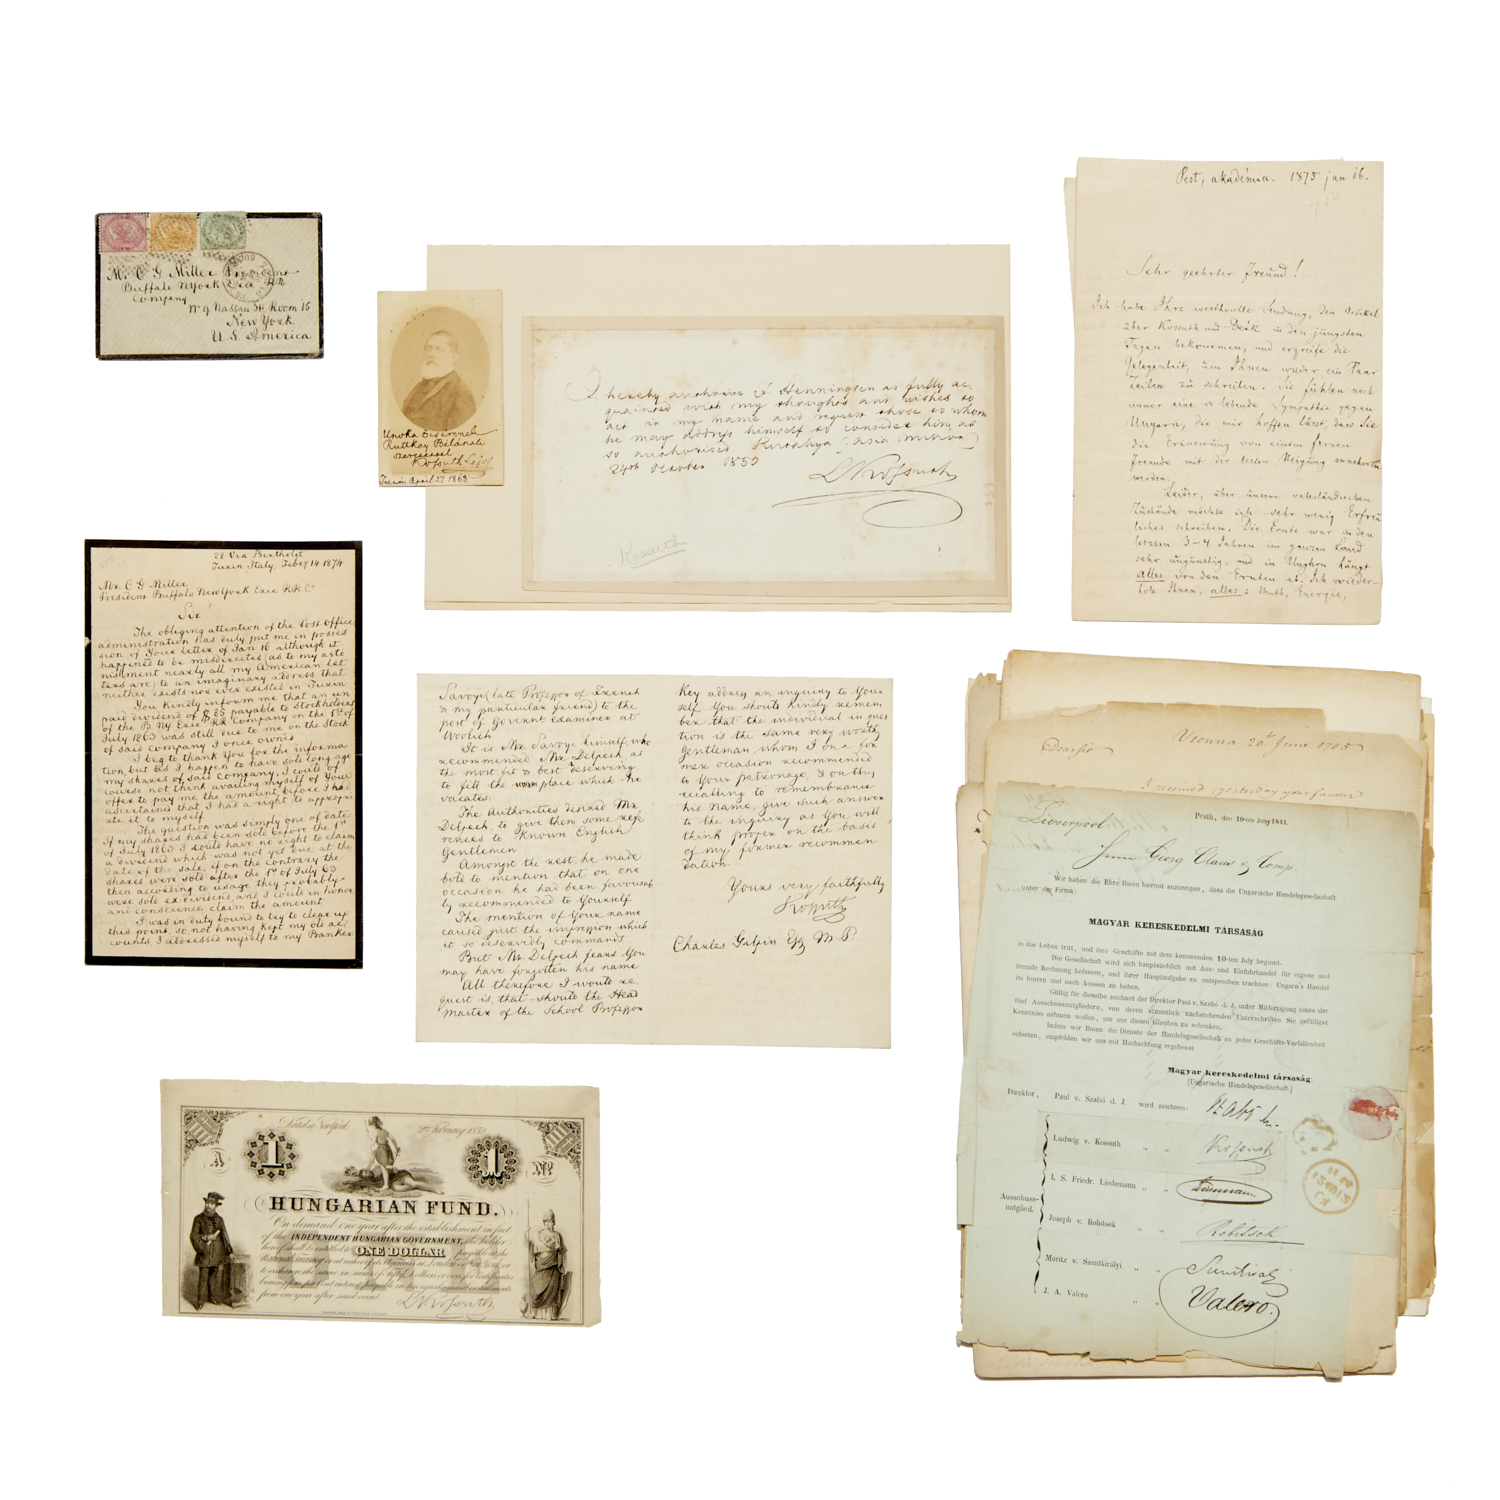 Mr. C G Miller President
Buffalo NYork Erie RR
Company
No 9 Nassau St Room 15
New York
U. S. America
Unoka
Ruttkay Bélának
Kossuth Lajos
Turin April 27 1863
I hereby authorise Henningsen as fully ac
quainted with my thoughts and wishes to
act in my name and request those to whom
he may address himself to consider him as
so authorised Kutahya (asia minor)
24th October 1850
L Kossuth
Kossuth
Pest, akadémia. 1875 jan 16.
Sehr geehrter Freund!
Ich habe Ihre werthvolle Sendung, den Artikel
über Kossuth und Deák in den jüngsten
Tagen bekommen, und ergreife die
Gelegenheit, um Ihnen wieder ein Paar
Zeilen zu schreiben. Sie fühlen noch
immer eine lebende Sympathie gegen
Ungarn, die mir hoffen lässt, dass Sie
die Erinnerung von einem fernen
Freunde mit der besten Neigung annehmen
werden.
Leider, über unsere vaterländischen
Zustände möchte ich sehr wenig Erfreu
liches schreiben. Die Ernte war in den
letzten 3-4 Jahren im ganzen Land
sehr ungünstig, und in Ungarn hängt
alles von den Ernten ab. Ich wieder-
hole Ihnen, alles: Muth, Energie,
22 Via Bertholet
Turin Italy, Febry 14 1874
Mr. C G Miller
President Buffalo NewYork Erie R.R. Co
Sir
The obliging attention of the Post Office
administration has duly put me in posses
sion of Your letter of Jan 16 although it
happened to be misdirected (as to my asto
nishment nearly all my American let
ters are) to an imaginary address that
neither exists nor ever existed in Turin
You kindly inform me that an un
paid dividend of $ 85 payable to Stockholders
of the B NY Erie RR Company on the 1st of
July 1863 was still due to me on the Stock
of said company I once owned
I beg to thank You for the informa
tion, but as I happen to have sold long ago
my shares of said company, I could of
course not think availing myself of Your
offer to pay me the amount, before I had
ascertained that I had a right to appropri
ate it to myself
The question was simply one of date
If my shares had been sold before the 1st
of July 1863 I could have no right to claim
a dividend which was not yet due at the
date of the sale; if on the contrary the
shares were sold after the 1st of July 63
then according to usage they probably
were sold ex dividend, and I could in honor
and conscience claim the amount
I was in duty bound to try to clear up
this point, so not having kept my old ac
counts, I addressed myself to my Banker
Savoye (late Professor of French
& my particular friend) to the
post of Governt Examiner at
Woolich
It is Mr Savoye himself, who
recommended Mr Delpech as
the most fit & best deserving
to fill the place which he
vacates.
The Authorities desired Mr.
Delpech, to give them some refe
rences to known English
Gentlemen
Amongst the rest, he made
bold to mention that on one
occasion he had been favourab
ly recommended to Yourself
The mention of Your name
caused just the impression which
it so deservedly commands
But Mr. Delpech fears You
may have forgotten his name
All therefore I would re
quest is, that should the Head
Master of the School Professor
Key address an inquiry to Your
self You should kindly remem
ber that the individual in ques
tion is the same very worthy
Gentleman, whom I on a for
mer occasion recommended
to Your patronage, & on thus
recalling to remembrance
his name, give such answer
to the inquiry as You will
think proper on the basis
of my former recommen
dation
Yours very faithfully
Kossuth
Charles Gilpin Esq M. P.
1
A
No
1
HUNGARIAN FUND.
On demand one year after the establishment in fact
of the INDEPENDENT HUNGARIAN GOVERNMENT, the Holder
hereof shall be entitled to ONE DOLLAR payable at the
National Treasury or at either of its Agencies at London or New York or
to exchange the same in sums of fifty Dollars or over for certificates
bearing four per Cent interest payable in ten equal annual instalments
from one year after said event.
L Kossuth
Vienna 20th June 1785
Dear Sir
I received yesterday your favour
Pesth, den 10-ten July 1844.
Liverpool
Herrn Georg Claus & Comp.
Wir haben die Ehre Ihnen hiermit anzuzeigen, dass die Ungarische Handelsgesellschaft
unter der Firma:
MAGYAR KERESKEDELMI TÁRSASÁG
in das Leben tritt, und ihre Geschäfte mit dem kommenden 10-ten July beginnt.
Die Gesellschaft wird sich hauptsächlich mit Aus- und Einfuhrhandel für eigene und
fremde Rechnung befassen, und ihrer Hauptaufgabe zu entsprechen trachten: Ungarn's Handel
im Innern und nach Aussen zu heben.
Gültig für dieselbe zeichnet der Direktor Paul v. Szabó d. J. unter Mitfertigung eines der
fünf Ausschussmitgliedern, von deren sämmtlich nachstehenden Unterschriften Sie gefälligst
Kenntniss nehmen wollen, um nur diesen Glauben zu schenken.
Indem wir Ihnen die Dienste der Handelsgesellschaft zu jeder Geschäfts-Vorfallenheit
anbieten, empfehlen wir uns mit Hochachtung ergebenst
Magyar kereskedelmi társaság
(Ungarische Handelsgesellschaft.)
Direktor, Paul v. Szabó d. J. wird zeichnen:
Ludwig v. Kossuth " " Kossuth
I. S. Friedr. Lindemann " " Lindemann
Ausschuss-
mitglied.
Joseph v. Robitsek " " Robitsek
Moritz v. Szentkirályi " " Szentkirályi
J. A. Valero " " Valero.